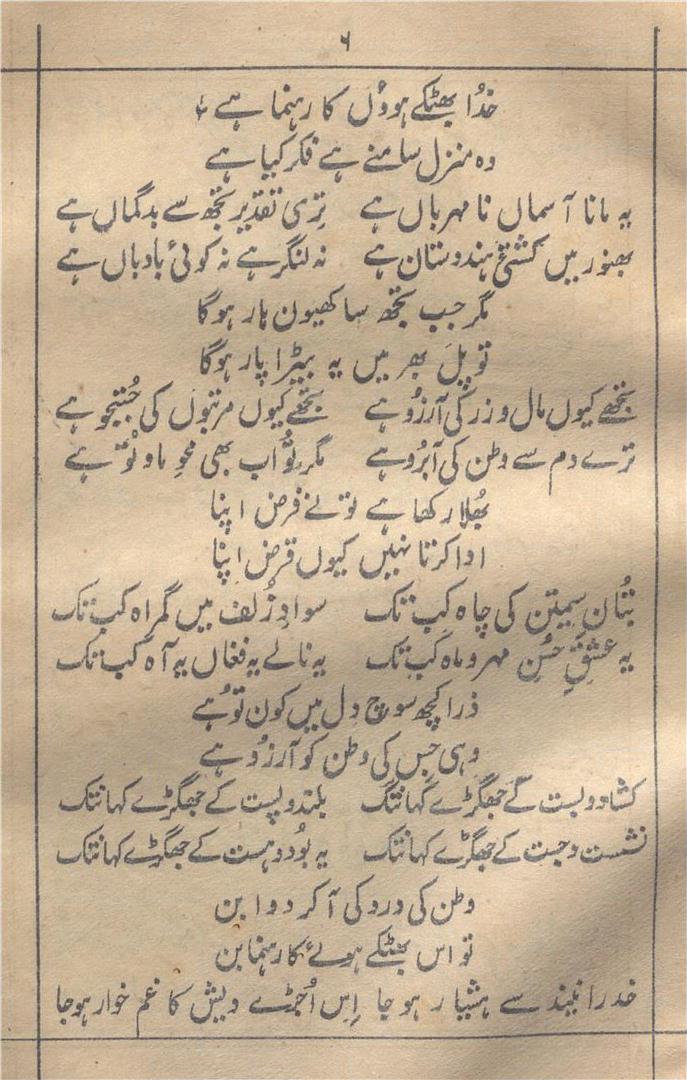 ۶
خدُا بھٹکے ہوؤں کا رہنما ہے
وہ منزل سامنے ہے فکر کیا ہے
یہ مانا آسماں نا مہرباں ہے تِری تقدیر تجھ سے بدگماں ہے
بھنور میں کشتیٔ ہندوستان ہے نہ لنگر ہے نہ کوئی بادباں ہے
مگر جب تجھ سا کھیون ہار ہوگا
تو پَل بھر میں یہ بیڑا پار ہوگا
تجھے کیوں مال و زر کی آرزوُ ہے تجھے کیوں مرتبوں کی جُستجو ہے
ترے دم سے وطن کی آبرُو ہے مگر توُ اب بھی محوِ ما و توُ ہے
بھُلا رکھا ہے تو نے فرض اپنا
ادا کرتا نہیں کیوں قرض اپنا
بتُانِ سیمتن کی چاہ کب تک سوادِ زُلف میں گمراہ کب تک
یہ عشقِ حسُنِ مہر و ماہ کب تک یہ نالے یہ فغاں یہ آہ کب تک
ذرا کچھ سوچ دل میں کون توُ ہے
وہی جس کی وطن کو آرزوُ ہے
کشاد و بست کے جھگڑے کہانتک بلند و پست کے جھگڑے کہانتک
نشست و جست کے جھگڑے کہانتک یہ بوُد و ہست کے جھگڑے کہانتک
وطن کی درد کی آکر دوا بن
تو اس بھٹکے ہوئے کا رہنما بن
خدرا نیند سے ہشیار ہو جا اِس اُجڑے دیش کا غم خوار ہوجا